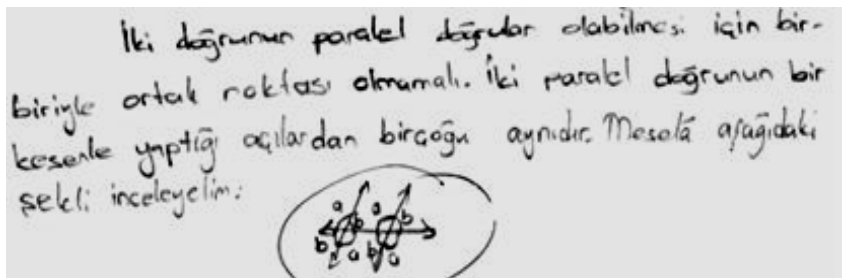 İki doğrunun paralel doğrular olabilmesi için bir-
biriyle ortak noktası olmamalı. İki paralel doğrunun bir
kesenle yaptığı açılardan birçoğu aynıdır. Mesela aşağıdaki
şekli inceleyelim:
a a
b b
b a b a